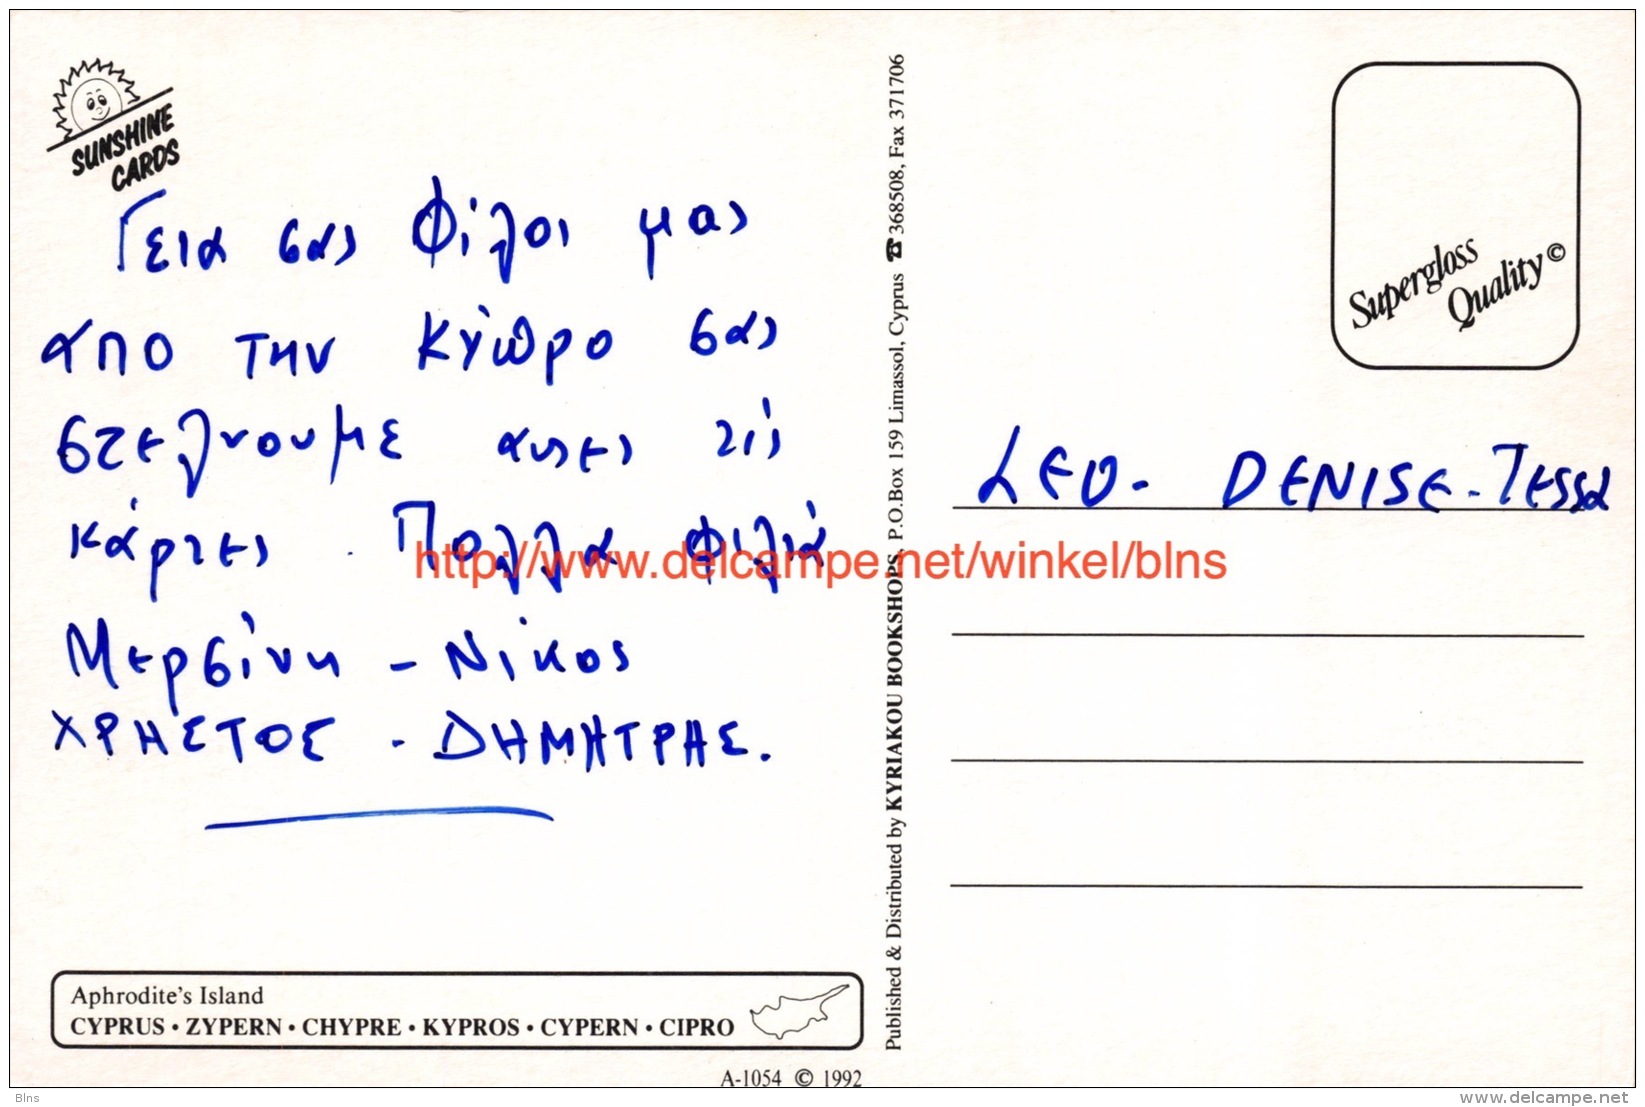 SUNSHINE
CARDS
Γεια σας Φίλοι μας
απο την Κύπρο σας
στελνουμε αυτες τις
κάρτες. Πολλα φιλιά
Μερσίνη - Νίκος
ΧΡΗΣΤΟΣ - ΔΗΜΗΤΡΗΣ.
Aphrodite's Island
CYPRUS • ZYPERN • CHYPRE • KYPROS • CYPERN • CIPRO
A-1054 © 1992
Published & Distributed by KYRIAKOU BOOKSHOPS, P.O.Box 159 Limassol, Cyprus ☎ 368508, Fax 371706
Supergloss
Quality ©
LEO - DENISE - TESSA
http://www.delcampe.net/winkel/blns
Blns
www.delcampe.net